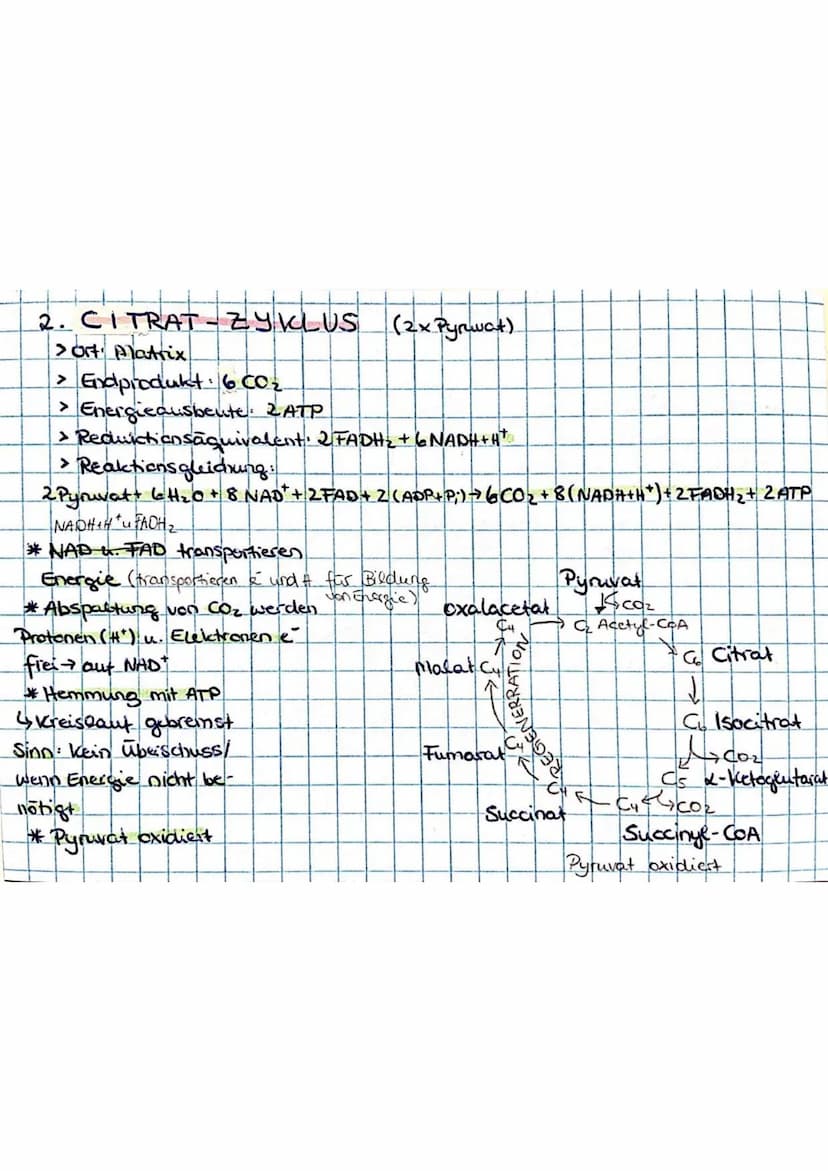 2. CITRAT-ZYKLUS (2x Pyruvat)
> Ort: Matrix
> Endprodukt: 6 CO₂
> Energieausbeute: 2 ATP
> Reduktionsäquivalent: 2 FADH₂ + 6 NADH+H⁺
> Reaktionsgleichung:
2 Pyruvat + 6 H₂O + 8 NAD⁺ + 2 FAD + 2 (ADP+Pi) → 6 CO₂ + 8 (NADH+H⁺) + 2 FADH₂ + 2 ATP
NADH+H⁺ u FADH₂
* NAD u. FAD transportieren
Energie (transportieren e⁻ und H für Bildung
von Energie)
* Abspaltung von CO₂ werden
Protonen (H⁺) u. Elektronen e⁻
frei → auf NAD⁺
* Hemmung mit ATP
↳ Kreislauf gebremst
Sinn: Kein Überschuss/
wenn Energie nicht be-
nötigt
* Pyruvat oxidiert
Pyruvat
↳ CO₂
Oxalacetat
C₄ → C₂ Acetyl-CoA
C₆ Citrat
Malat C₄
C₆ Isocitrat
↳ CO₂
Fumarat C₄
C₅ α-Ketoglutarat
C₄ ← C₄ ↳ CO₂
Succinat
Succinyl-CoA
REGENERRATION
Pyruvat oxidiert